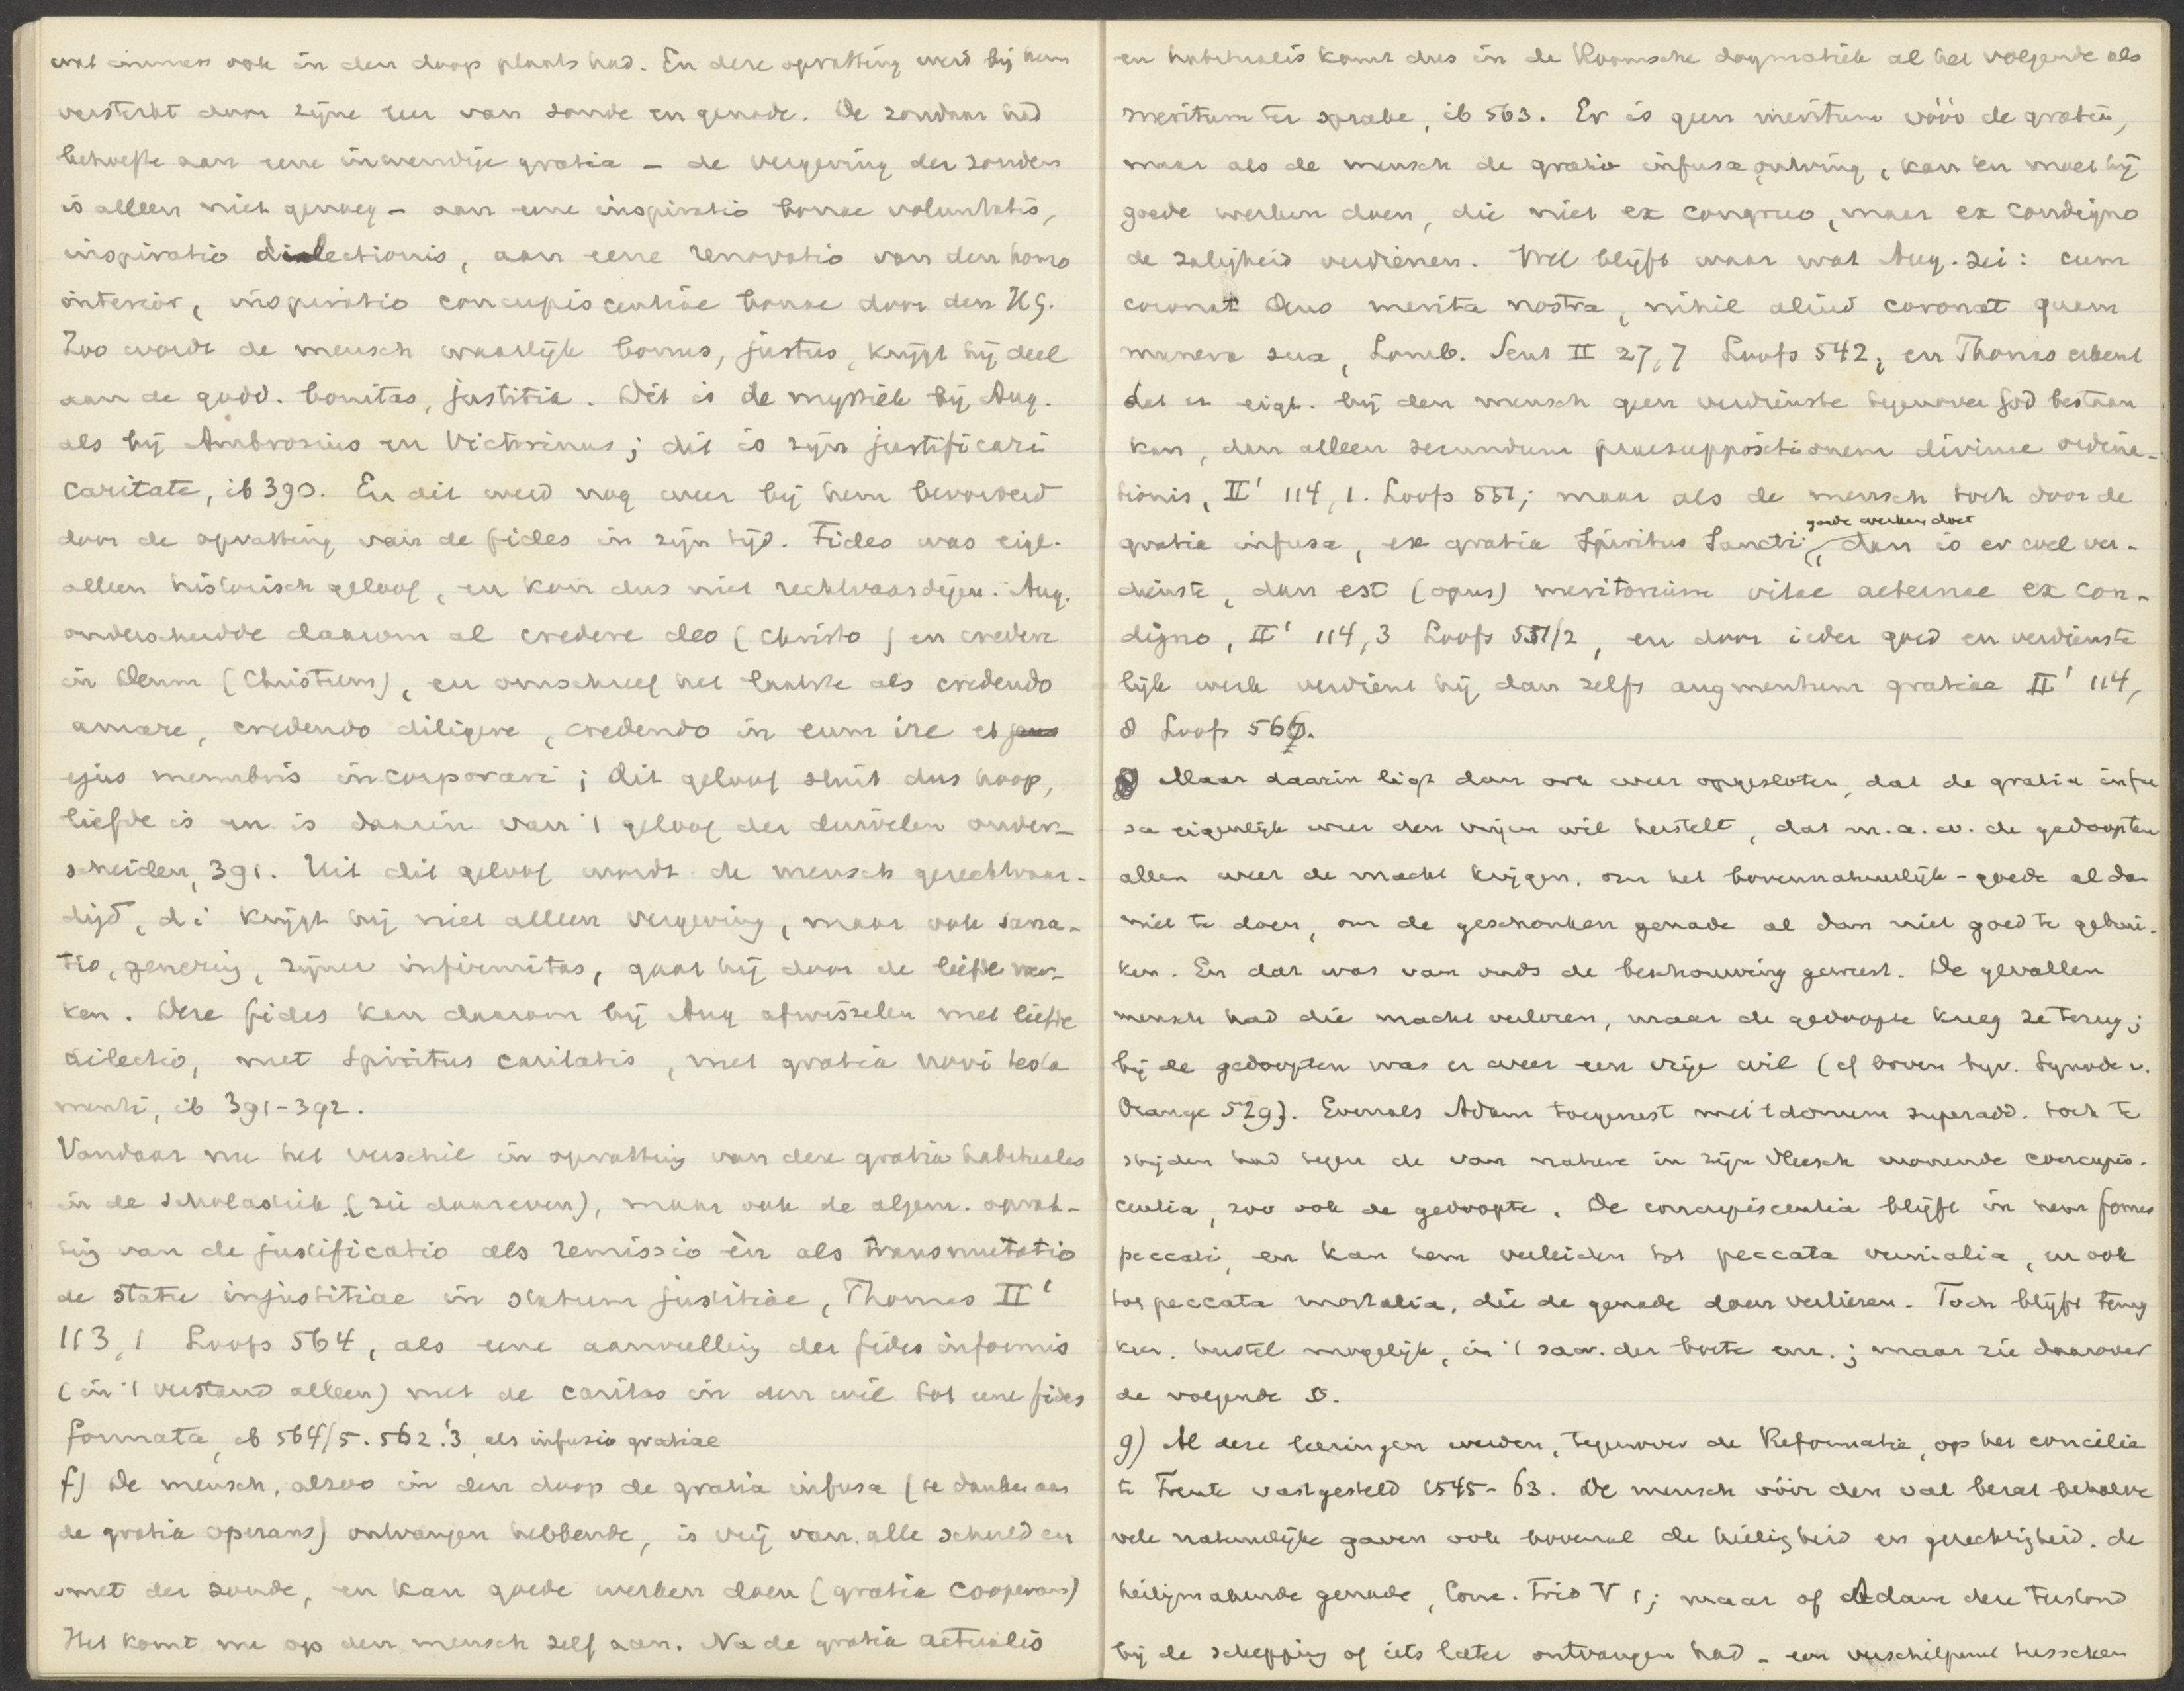 wat immers ook in den doop plaats had. En deze opvatting werd bij hem
versterkt door zijne leer van zonde en genade. De zondaar had
behoefte aan eene inwendige gratia – de vergeving der zonden
is alleen niet genoeg – aan eene inspiratio bonae voluntatis,
inspiratio dilectionis, aan eene renovatio van den homo
interior, inspiratio concupiscentiae bonae door den HG.
Zoo wordt de mensch waarlijk bonus, justus, krijgt hij deel
aan de godd. bonitas, justitia. Dit is de mystiek bij Aug.
als bij Ambrosius en Victorinus; dit is zijn justificari
caritate, ib 390. En dit werd nog weer bij hem bevorderd
door de opvatting van de fides in zijn tijd. Fides was eige-
alleen historisch geloof, en kon dus niet rechtvaardigen. Aug.
onderscheidde daarom al credere deo (Christo) en credere
in Deum (Christum), en omschreef het laatste als credendo
amare, credendo diligere, credendo in eum ire et
ejus membris incorporari; dit geloof sluit dus hoop,
liefde in en is daarin van 't geloof der duivelen onder-
scheiden, 391. Uit dit geloof wordt de mensch gerechtvaar-
digd, d.i. krijgt hij niet alleen vergeving, maar ook sana-
tio, genezing, zijner infirmitas, gaat hij door de liefde wer-
ken. Deze fides kan daarom bij Aug afwisselen met liefde
dilectio, met Spiritus caritatis, met gratia novi testa
menti, ib 391-392.
Vandaar nu het verschil in opvatting van deze gratia habitualis
in de scholastiek (zie daareven), maar ook de algem. opvat-
ting van de justificatio als remissio èn als transmutatio
de statu injustitiae in statum justitiae, Thomas II'
113,1 Loofs 564, als eene aanvulling der fides informis
(in 't verstand alleen) met de caritas in den wil tot eene fides
formata, ib 564/5. 562.'3, als infusio gratiae
f) De mensch, alzoo in den doop de gratia infusa (te danken aan
de gratia operans) ontvangen hebbende, is vrij van alle schuld en
smet der zonde, en kan goede werken doen (gratia cooperans)
Het komt nu op den mensch zelf aan. Na de gratia actualis
en habitualis komt dus in de Roomsche dogmatiek al het volgende als
meritum ter sprake, ib 563. Er is geen meritum vóór de gratia,
maar als de mensch de gratia infusa ontving, kan en moet hij
goede werken doen, die niet ex congruo, maar ex condigno
de zaligheid verdienen. Wel blijft waar wat Aug. zei: cum
coronat Deus merita nostra, nihil aliud coronat quam
munera sua, Lomb. Sent II 27,7 Loofs 542, en Thomas erkent
dat er eigl. bij den mensch geen verdienste tegenover God bestaan
kan, dan alleen secundum praesuppositionem divinae ordina-
tionis, II' 114,1. Loofs 551; maar als de mensch toch door de
gratia infusa, ex gratia Spiritus Sancti, goede werken doet, dan is er wel ver-
dienste, dan est (opus) meritorium vitae aeternae ex con-
digno, II' 114,3 Loofs 551/2, en door ieder goed en verdienste
lijk werk verdient hij dan zelfs augmentum gratiae II' 114,
8 Loofs 566.
Maar daarin ligt dan ook weer opgesloten, dat de gratia infu
sa eigenlijk weer den vrijen wil herstelt, dat m.a.w. de gedoopten
allen weer de macht krijgen, om het bovennatuurlijk-goede al dan
niet te doen, om de geschonken genade al dan niet goed te gebrui-
ken. En dat was van ouds de beschouwing geweest. De gevallen
mensch had die macht verloren, maar de gedoopte kreeg ze terug;
bij de gedoopten was er weer een vrije wil (cf boven bijv. Synode v.
Orange 529). Evenals Adam toegerust met 't donum superadd. toch te
strijden had tegen de van nature in zijn vleesch wonende concupis-
centia, zoo ook de gedoopte. De concupiscentia blijft in hem fomes
peccati, en kan hem verleiden tot peccata venialia, en ook
tot peccata mortalia, die de genade doen verliezen. Toch blijft terug
keer, herstel mogelijk, in 't sacr. der boete enz.; maar zie daarover
de volgende §.
g) Al deze leeringen werden, tegenover de Reformatie, op het concilie
te Trente vastgesteld 1545-63. De mensch vóór den val bezat behalve
vele natuurlijke gaven ook bovenal de heiligheid en gerechtigheid, de
heiligmakende genade, Conc. Trid V 1; maar of Adam deze toestand
bij de schepping of iets later ontvangen had – een verschilpunt tusschen